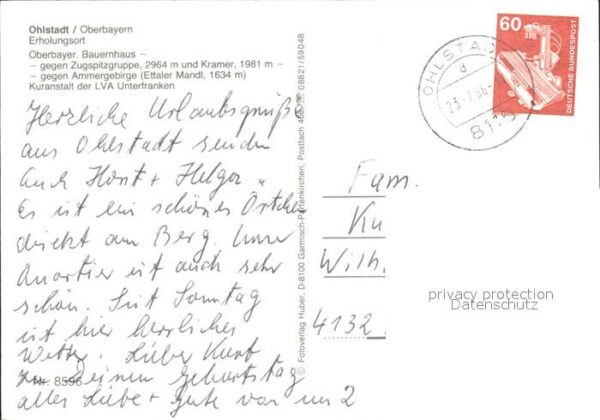 Ohlstadt / Oberbayern
Erholungsort
Oberbayer. Bauernhaus –
– gegen Zugspitzgruppe, 2964 m und Kramer, 1981 m –
– gegen Ammergebirge (Ettaler Mandl, 1634 m)
Kuranstalt der LVA Unterfranken
Herzliche Urlaubsgrüße
aus Ohlstadt senden
Euch Horst + Helga.
Es ist ein schönes Örtchen
direkt am Berg. Unser
Quartier ist auch sehr
schön. Seit Sonntag
ist hier herrliches
Wetter. Lieber Kurt
zu deinem Geburtstag
alles Liebe + Gute von uns 2
Nr. 8596
© Fotoverlag Huber, D-8100 Garmisch-Partenkirchen, Postfach 466, 08821/59048
60
DEUTSCHE BUNDESPOST
OHLSTADT
d
8115
Fam.
Ku
Wilh.
4132
privacy protection
Datenschutz